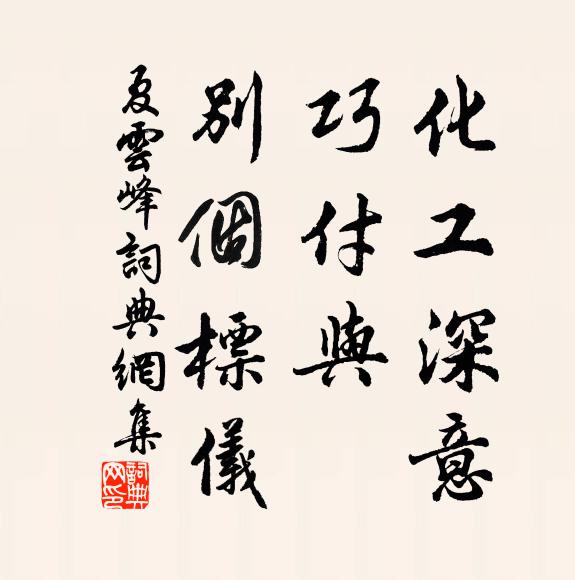 化工深意
巧付與
別個標儀
夏雲峰詞典網集
詞典网印